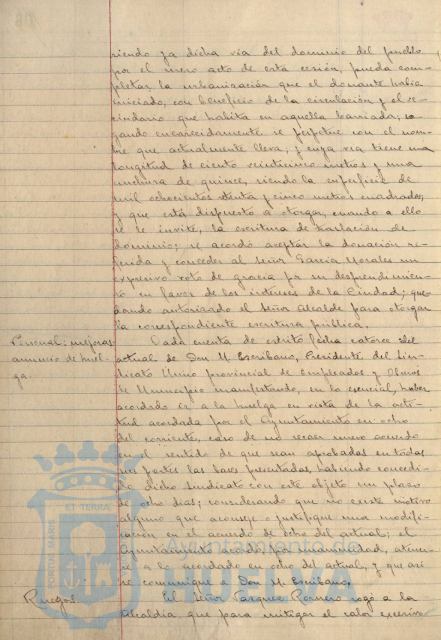 siendo ya dicha via del dominio del pueblo
por el mero acto de esta cesión, pueda com-
pletar la urbanización que el donante habia
iniciado, con beneficio de la circulación y el ve-
cindario que habita en aquella barriada; ro-
gando encarecidamente se perpetúe con el nom-
bre que actualmente lleva; y cuya via tiene una
longitud de ciento veinticinco metros y una
anchura de quince, siendo la superficie de
mil ochocientos setenta y cinco metros cuadrados,
y que está dispuesto a otorgar, cuando a ello
se le invite, la escritura de traslación de
dominio; se acordó aceptar la donación re-
ferida y conceder al señor García Morales un
expresivo voto de gracia por su desprendimien-
to en favor de los intereses de la Ciudad; que-
dando autorizado el señor Alcalde para otorgar
la correspondiente escritura pública.
Personal: mejoras
anuncio de huel-
ga.
Dada cuenta de escrito fecha catorce del
actual de Don M. Escribano, Presidente del Sin-
dicato Único provincial de Empleados y Obreros
de Municipio manifestando, en lo esencial, haber
acordado ir a la huelga en vista de la acti-
tud acordada por el Ayuntamiento en ocho
del corriente, caso de no recaer nuevo acuerdo
en el sentido de que sean aprobadas en todas
sus partes las bases presentadas, habiendo concedi-
do dicho sindicato con este objeto un plazo
de ocho dias; considerando que no existe motivo
alguno que aconseje o justifique una modifi-
cación en el acuerdo de ocho del actual; el
Ayuntamiento acordó, por unanimidad, atener-
se a lo acordado en ocho del actual, y que asi
se comunique a Don M. Escribano.
Ruegos.
El Señor Vazquez Romero rogó a la
Alcaldía que para mitigar el calor excesivo
PORTUS MARIS
ET TERRÆ
Ayuntamiento de